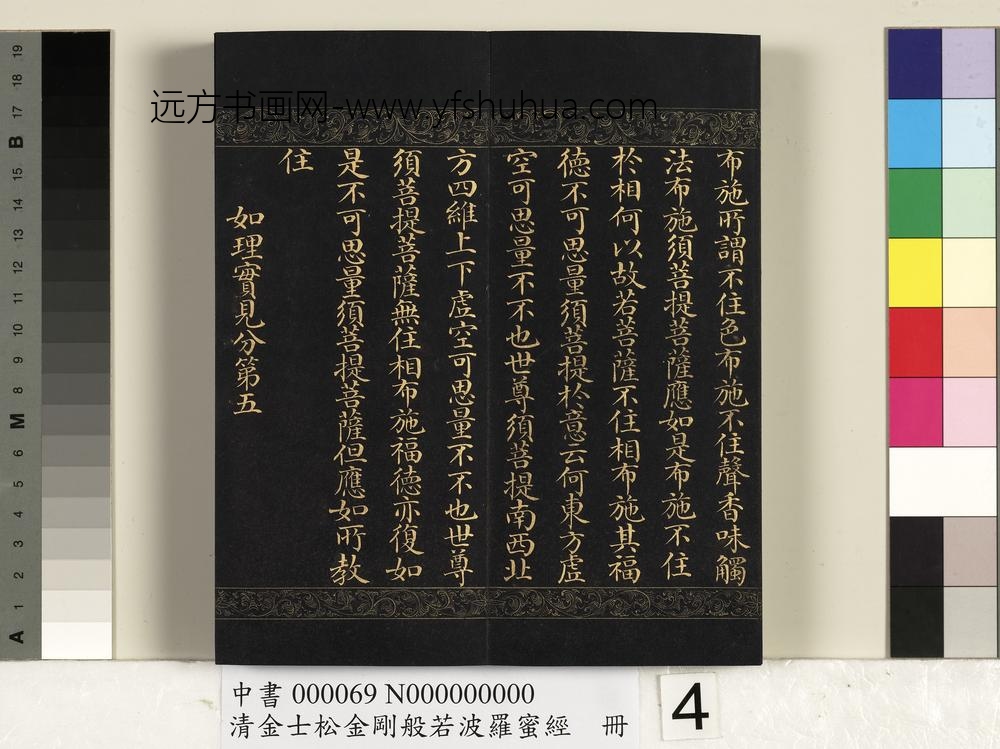 远方书画网-www.yfshuhua.com
布施所謂不住色布施不住聲香味觸
法布施須菩提菩薩應如是布施不住
於相何以故若菩薩不住相布施其福
德不可思量須菩提於意云何東方虛
空可思量不不也世尊須菩提南西北
方四維上下虛空可思量不不也世尊
須菩提菩薩無住相布施福德亦復如
是不可思量須菩提菩薩但應如所教
住
如理實見分第五
中書 000069 N000000000
清金士松金剛般若波羅蜜經 冊
4
A 1 2 3 4 5 6 M 8 9 10 11 12 13 14 15 B 17 18 19